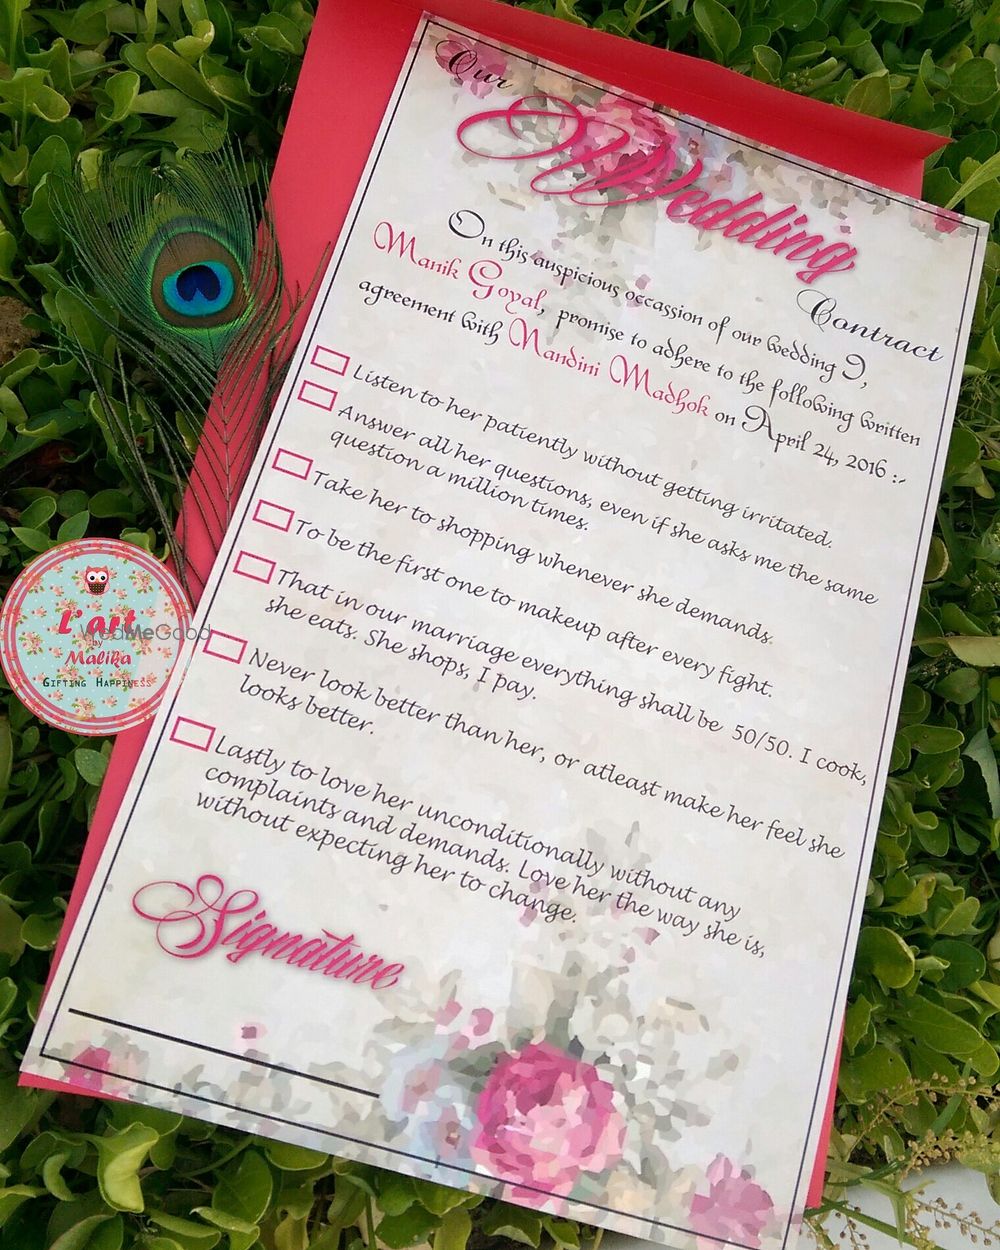 Our
Wedding
Contract
On this auspicious occassion of our wedding I,
Manik Goyal, promise to adhere to the following written
agreement with Nandini Madhok on April 24, 2016 :-
Listen to her patiently without getting irritated.
Answer all her questions, even if she asks me the same
question a million times.
Take her to shopping whenever she demands.
To be the first one to makeup after every fight.
That in our marriage everything shall be 50/50. I cook,
she eats. She shops, I pay.
Never look better than her, or atleast make her feel she
looks better.
Lastly to love her unconditionally without any
complaints and demands. Love her the way she is,
without expecting her to change.
Signature
L'art
by
Malika
Gifting Happiness
WedMeGood